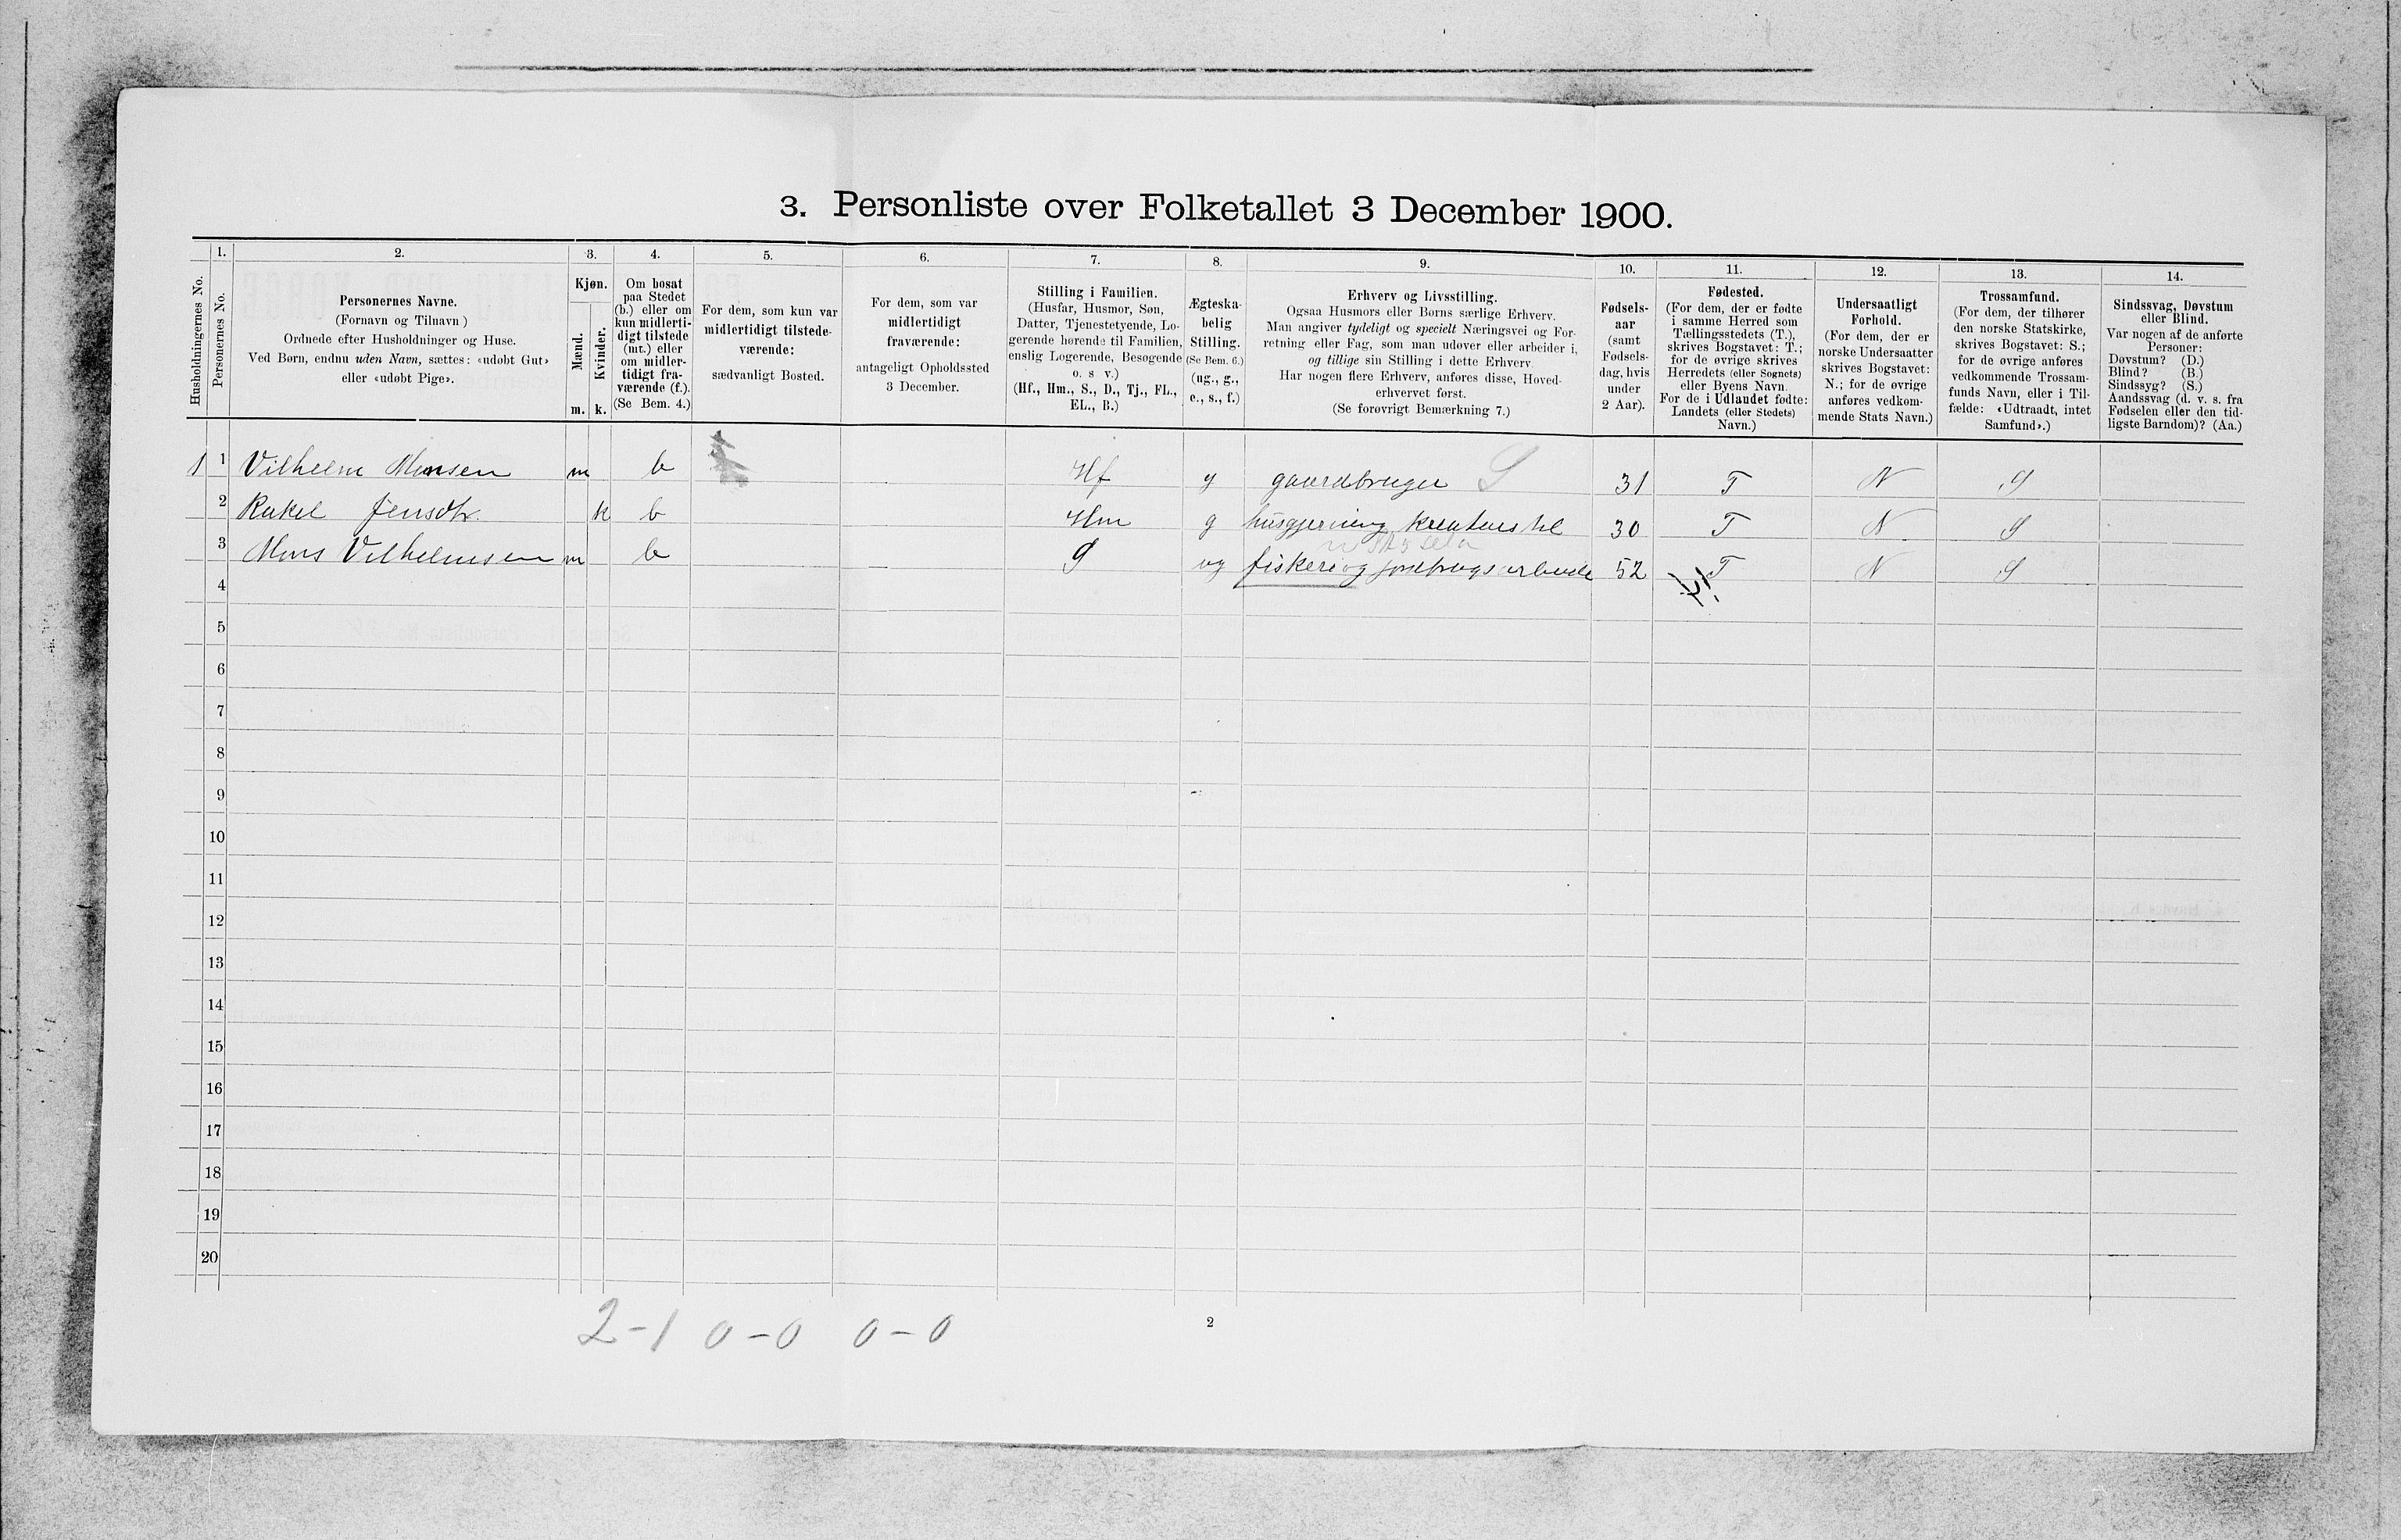 3. Personliste over Folketallet 3 December 1900.
Husholdningernes No.
1.
Personernes No.
2.
Personernes Navne.
(Fornavn og Tilnavn)
Ordnede efter Husholdninger og Huse.
Ved Børn, endnu uden Navn, sættes: «udøbt Gut»
eller «udøbt Pige».
3.
Kjøn.
Mænd.
Kvinder.
m. k.
4.
Om bosat
paa Stedet
(b.) eller om
kun midlerti-
digt tilstede
(mt.) eller
om midler-
tidigt fra-
værende (f.).
(Se Bem. 4.)
5.
For dem, som kun var
midlertidigt tilstede-
værende:
sædvanligt Bosted.
6.
For dem, som var
midlertidigt
fraværende:
antageligt Opholdssted
3 December.
7.
Stilling i Familien.
(Husfar, Husmor, Søn,
Datter, Tjenestetyende, Lo-
gerende hørende til Familien,
enslig Logerende, Besøgende
o. s v.)
(Hf., Hm., S., D., Tj., FL.,
EL., B.)
8.
Ægteska-
belig
Stilling.
(Se Bem. 6.)
(ug., g.,
e., s., f.)
9.
Erhverv og Livsstilling.
Ogsaa Husmors eller Børns særlige Erhverv.
Man angiver tydeligt og specielt Næringsvei og For-
retning eller Fag, som man udøver eller arbeider i,
og tillige sin Stilling i dette Erhverv.
Har nogen flere Erhverv, anføres disse, Hoved-
erhvervet først.
(Se forøvrigt Bemærkning 7.)
10.
Fødsels-
aar
(samt
Fødsels-
dag, hvis
under
2 Aar).
11.
Fødested.
(For dem, der er fødte
i samme Herred som
Tællingsstedets (T.),
skrives Bogstavet: T.;
for de øvrige skrives
Herredets (eller Sognets)
eller Byens Navn.
For de i Udlandet fødte:
Landets (eller Stedets)
Navn.)
12.
Undersaatligt
Forhold.
(For dem, der er
norske Undersaatter
skrives Bogstavet:
N.; for de øvrige
anføres vedkom-
mende Stats Navn.)
13.
Trossamfund.
(For dem, der tilhører
den norske Statskirke,
skrives Bogstavet: S.;
for de øvrige anføres
vedkommende Trossam-
funds Navn, eller i Til-
fælde: «Udtraadt, intet
Samfund».)
14.
Sindssvag, Døvstum
eller Blind.
Var nogen af de anførte
Personer:
Døvstum? (D.)
Blind? (B.)
Sindssyg? (S.)
Aandssvag (d. v. s. fra
Fødselen eller den tid-
ligste Barndom)? (Aa.)
1 1 Vilhelm Monsen m b Hf g gaardbruger S 31 T N S
2 Rakel Jensdtr. k b Hm g husgjerning kreaturstel 30 T N S
3 Mons Vilhelmsen m b S ug fiskeri og jordbrugsarbeide 52 T N S
4
5
6
7
8
9
10
11
12
13
14
15
16
17
18
19
20
2-1 0-0 0-0
2